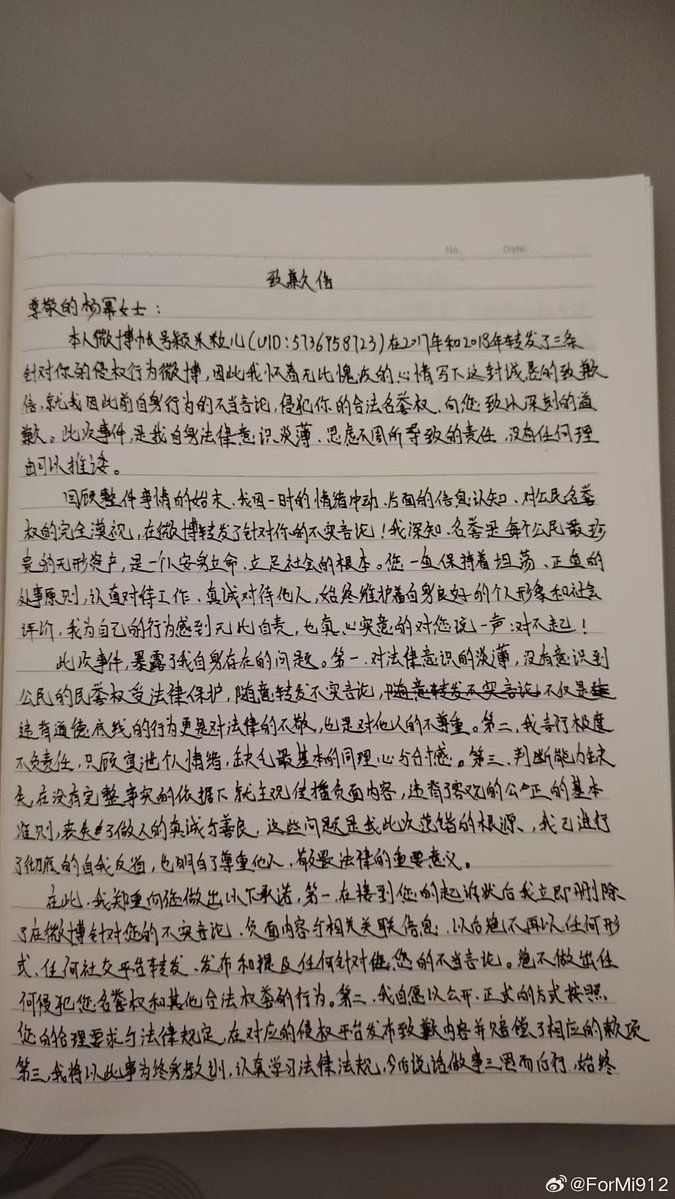 No.    Date...
致歉信
尊敬的杨幂女士：
本人微博帐号颖米粒儿(UID:5736958723)在2017年和2018年转发了三条
针对你的侵权行为微博，因此我怀着无比愧疚的心情写下这封诚恳的致歉
信，就我因此前自身行为的不当言论，侵犯你的合法名誉权，向您致以深刻的道
歉。此次事件，是我自身法律意识淡薄、思虑不周所导致的责任，没有任何理
由可以推诿。
回顾整件事情的始末、我因一时的情绪冲动、片面的信息认知、对公民名誉
权的完全漠视，在微博转发了针对你的不实言论！我深知、名誉是每个公民最珍
贵的无形资产，是一个人安身立命、立足社会的根本。您一直保持着坦荡、正直的
处事原则，认真对待工作、真诚对待他人，始终维护着自身良好的个人形象和社会
评价，我为自己的行为感到无比自责，也真心实意的对您说一声：对不起！
此次事件，暴露了我自身存在的问题。第一、对法律意识的淡薄，没有意识到
公民的名誉权受法律保护，随意转发不实言论，随意转发不实言论不仅是
违背道德底线的行为更是对法律的不敬，也是对他人的不尊重。第二，我言行极度
不负责任，只顾宣泄个人情绪，缺乏最基本的同理心与分寸感。第三、判断能力缺
失，在没有完整事实的依据下就主观传播负面内容，违背了客观的公正的基本
准则，丧失了做人的真诚与善良，这些问题是我此次犯错的根源、我已进行
了彻底的自我反省，也明白了尊重他人、敬畏法律的重要意义。
在此，我郑重向您做出以下承诺，第一、在接到您的起诉状后我立即删除
了在微博针对您的不实言论、负面内容与相关关联信息，以后绝不再以任何形
式、任何社交平台转发、发布和提及任何针对您的不当言论。绝不做出任
何侵犯您名誉权和其他合法权益的行为。第二、我自愿以公开、正式的方式按照
您的合理要求与法律规定，在对应的侵权平台发布致歉内容并赔偿了相应的款项
第三，我将以此事为终身教训，认真学习法律法规，今后说话做事三思而后行，始终
@ForMi912